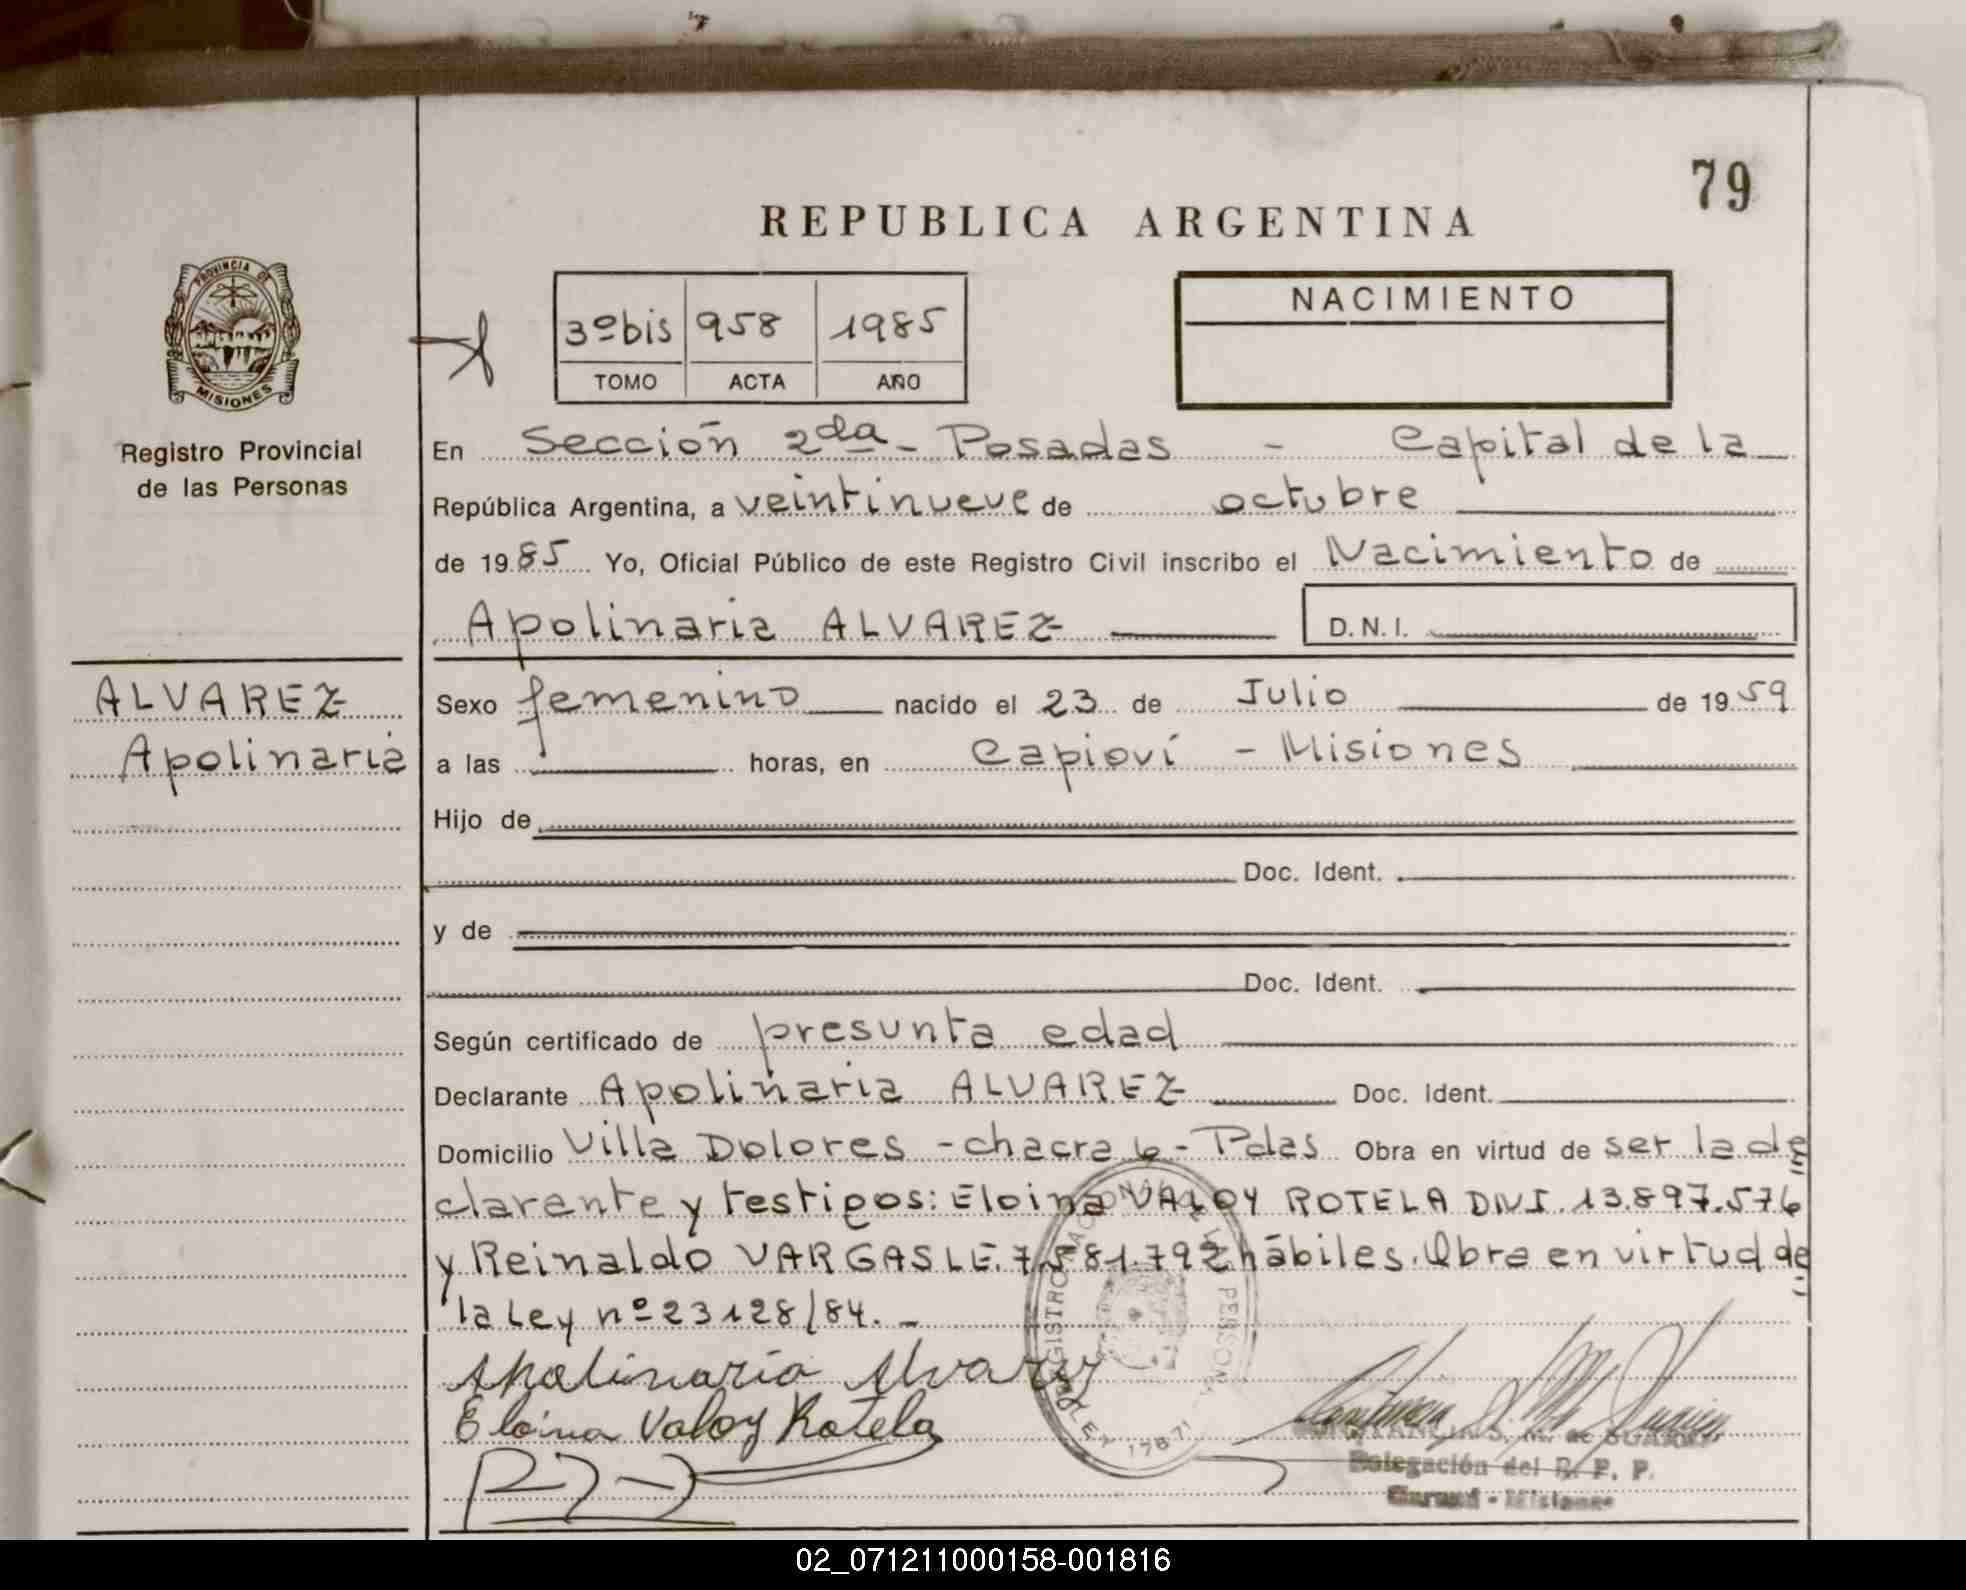 79
REPUBLICA ARGENTINA
PROVINCIA DE
MISIONES
Registro Provincial
de las Personas
3º bis 958 1985
TOMO ACTA AÑO
NACIMIENTO
En Sección 2da - Posadas - Capital de la
República Argentina, a veintinueve de octubre
de 1985 Yo, Oficial Público de este Registro Civil inscribo el Nacimiento de
Apolinaria ALVAREZ D.N.I.
ALVAREZ
Apolinaria
Sexo femenino nacido el 23 de Julio de 1959
a las horas, en Capioví - Misiones
Hijo de
Doc. Ident.
y de
Doc. Ident.
Según certificado de presunta edad
Declarante Apolinaria ALVAREZ Doc. Ident.
Domicilio Villa Dolores - chacra 6 - Pdas Obra en virtud de ser la de
clarante y testigos: Eloina VALOY ROTELA DNI. 13.897.576
y Reinaldo VARGAS LE. 7.581.792 hábiles. Obra en virtud de
la Ley nº 23128/84. -
Apolinaria Alvarez
Eloina Valoy Rotela
LEY 17671
Delegación del R. P. P.
02_071211000158-001816